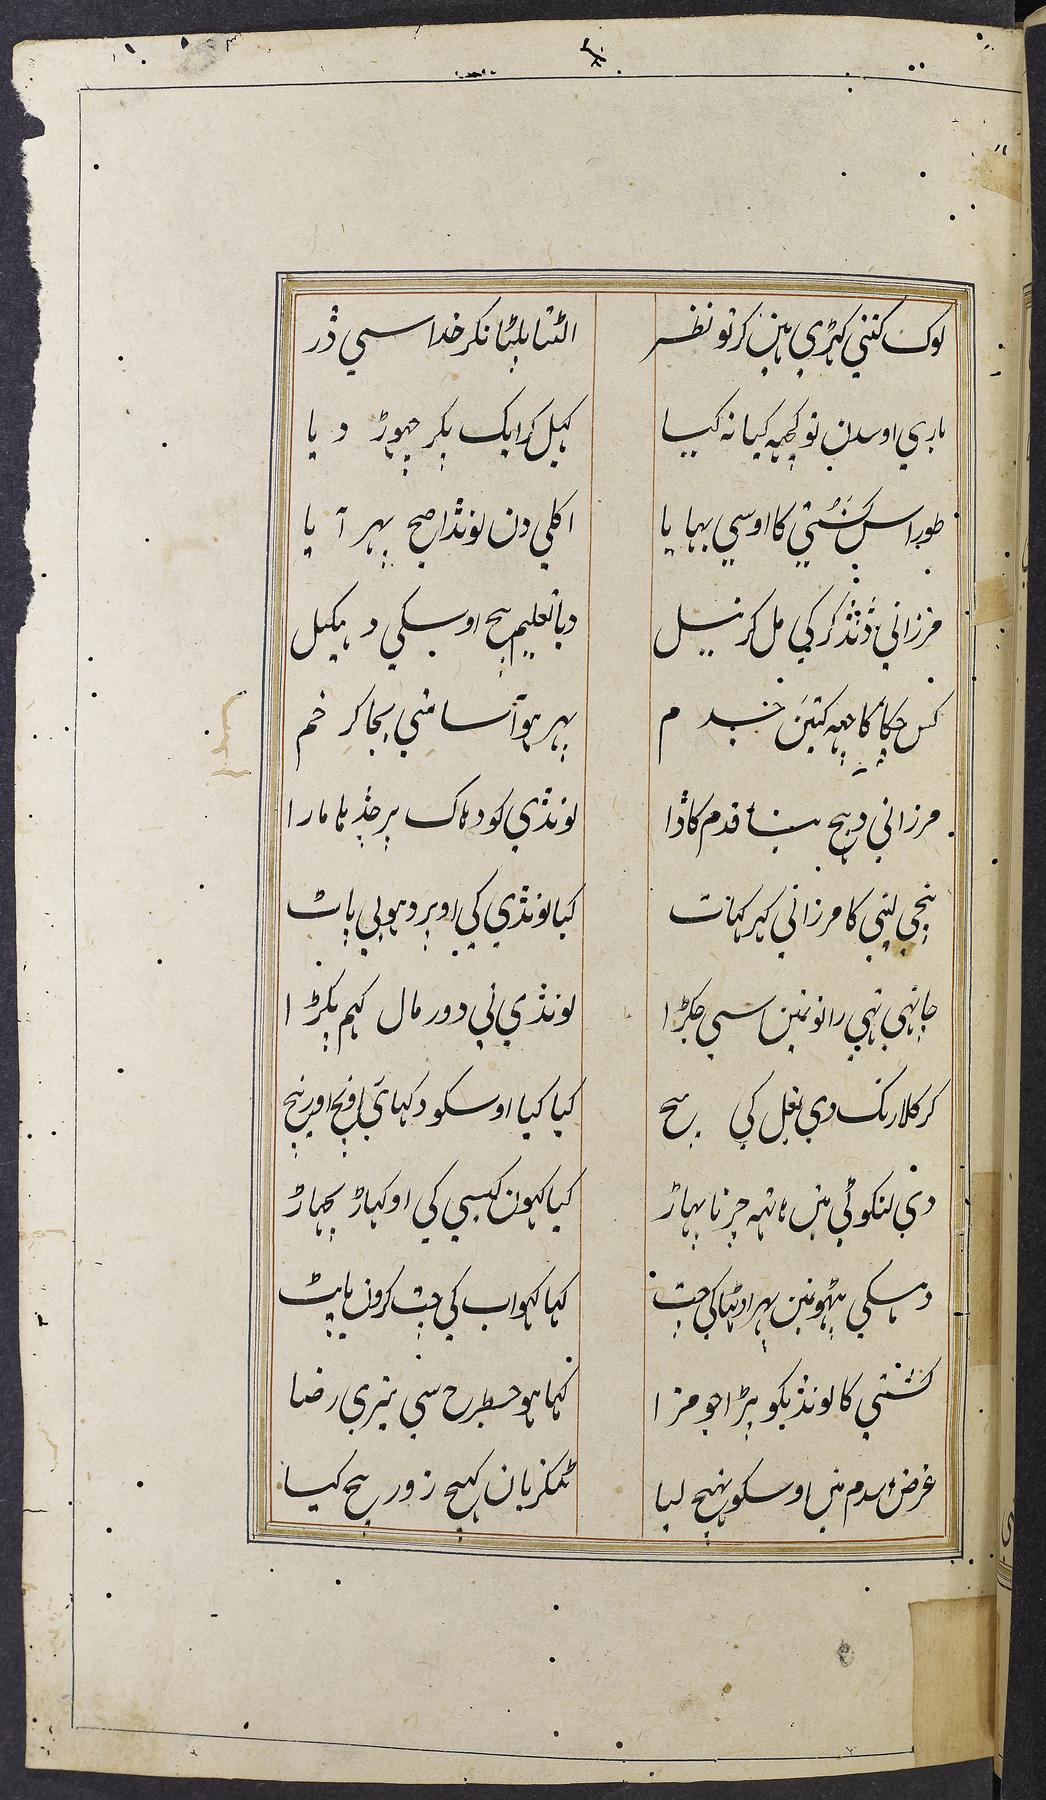 لوک کتنی کہڑی ہین کر تو نظر الٹتا پلٹتا نکر خدا سی ڈر
باری اوسدن تو کچہہ کیا نہ کیا کہیل کر ایک پکر چہوڑ دیا
طور اس کشتی کا اوسی بہایا اکلی دن لونڈا صبح پہر آیا
مرزانی ڈنڈ کر کی مل کر تیل دہا تعلیم بیچ اوسکی دہکیل
کس جکا کا چہہ کتین پہر ہوا سامنی بجا کر خم
مرزانی دہج بنا قدم کاڈا لونڈی کو دہاک پر مارا
نیچی لیتی کا مرزانی کہر کہات کیا لونڈی کی اوپر دہوبی پاٹ
جانہی تہی رانونمین سی جکڑا لونڈی نی دور مال کہم پکڑا
کر کلارنک دی بغل کی بیچ کیا کیا اوسکو دکہائی اونچ اور نیچ
دی لنکوٹی مین ہاتہہ چرنا پہاڑ کیا کہون کیسی کی اوکہاڑ پچہاڑ
دہسکی پٹہونمین پہر اوٹہا کی چت کہا کہو اب کی چت کرون یا پٹ
کشتی کا لونڈیکو پڑا جو مزا کہا ہو جسطرح سی تیری رضا
غرض اوسدم مین اوسکو پہنچ لیا ٹہکر بان کہیچ زور بیچ کیا